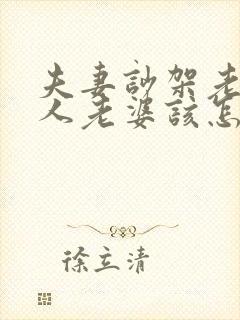 夫妻訃架老
人老婆该怎
徐立清